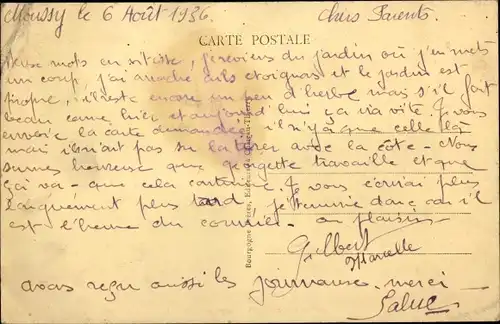 Moussy le 6 Août 1936. Chers Parents.
CARTE POSTALE
Deux mots en vitesse, je reviens du jardin où j'en mets
un coup, j'ai arraché ails et oignons et le jardin est
propre, il reste encore un peu d'herbe mais s'il fait
beau comme hier et aujourd'hui ça ira vite. Je vous
envoie la carte demandée il n'y a que celle là
mais il n'est pas sur la terre avec la côte - Nous
sommes heureuse que Georgette travaille et que
ça va - que cela continue. Je vous écrirai plus
longuement plus tard je termine donc car il
est l'heure du courrier. au plaisir
Gilbert
Marcelle
avons reçu aussi les journaux. merci
Salue